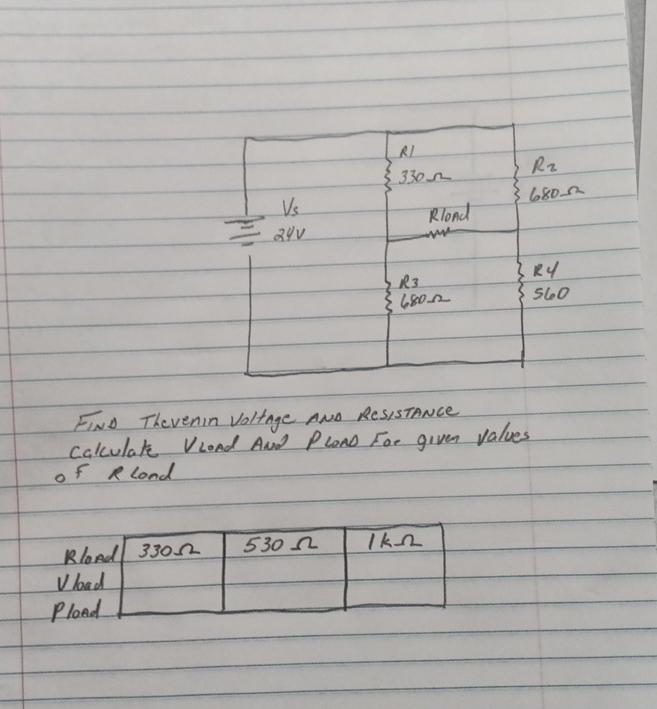 R1
330Ω
R2
680Ω
Vs
24V
Rload
R3
680Ω
R4
560
FIND Thevenin Voltage AND RESISTANCE
Calculate VLOAD AND PLOAD For given values
of RLoad
Rload 330Ω 530Ω 1kΩ
Vload
Pload